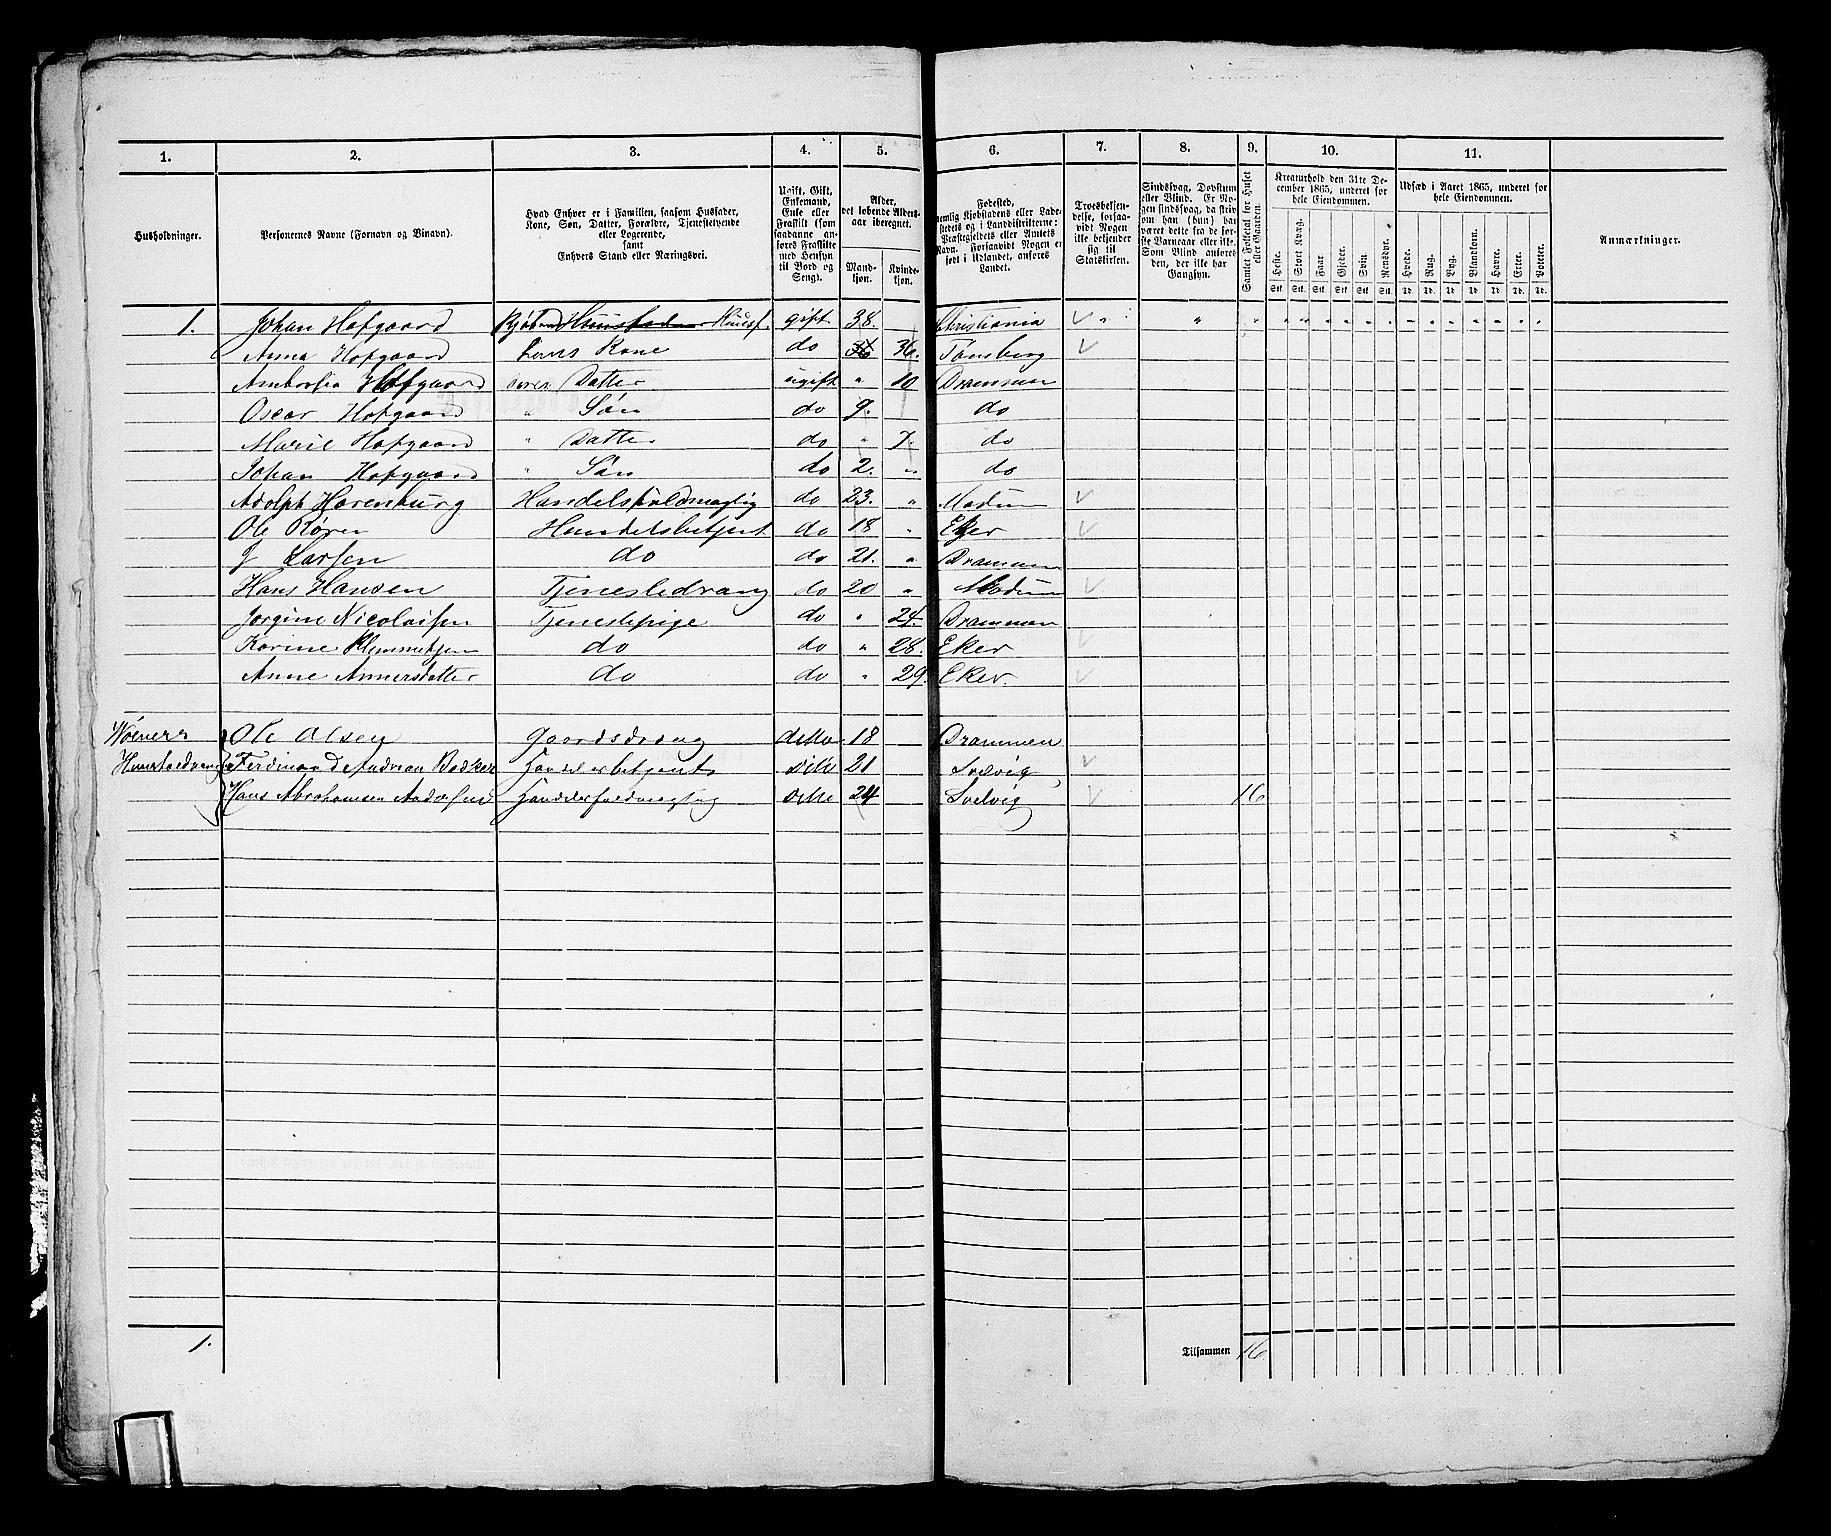 1. 2. 3. 4. 5. 6. 7. 8. 9. 10. 11.
Husholdninger.
Personernes Navne (Fornavn og Binavn).
Hvad Enhver er i Familien, saasom Husfader, Kone, Søn, Datter, Forældre, Tjenestetyende eller Logerende, samt Enhvers Stand eller Næringsvei.
Ugift, Gift, Enkemand, Enke eller Fraskilt (som saadanne anføres Fraskilte med Hensyn til Bord og Seng).
Alder, det løbende Aldersaar iberegnet.
Mandkjøn. Kvindekjøn.
Fødested, nemlig Kjøbstadens eller Ladestedets og i Landdistrikterne: Præstegjeldets eller Amtets Navn. Forsaavidt Nogen er født i Udlandet, anføres Landet.
Troesbekjendelse, forsaavidt Nogen ikke bekjender sig til Statskirken.
Sindssvag, Døvstum eller Blind. Er Nogen sindssvag, da skriv om han (hun) har været dette fra de første Barneaar eller ikke. Som Blind anføres den, der ikke har Gangsyn.
Samlet Folketal for Huset eller Gaarden.
Kreaturhold den 31te December 1865, underet for hele Eiendommen.
Heste. Stort Kvæg. Faar. Gjeder. Svin. Rensdyr.
Stk. Stk. Stk. Stk. Stk. Stk.
Udsæd i Aaret 1865, underet for hele Eiendommen.
Hvede. Rug. Byg. Blandkorn. Havre. Erter. Poteter.
Td. Td. Td. Td. Td. Td. Td.
Anmærkninger.
1. Johan Hofgaard Kjøbmd Huusfader Huusf. gift 38. Christiania
Anna Hofgaard hans Kone do 36 36. Tønsberg
Ambrosia Hofgaard deres Datter ugift " 10 Drammen
Oscar Hofgaard " Søn do 9. do
Marie Hofgaard " Datter do " 7. do
Johan Hofgaard " Søn do 2. " do
Adolph Horenburg Handelsfuldmægtig do 23. " Modum
Ole Røren Handelsbetjent do 18 " Eger
J Larsen do do 21. " Drammen
Hans Hansen Tjenestedreng do 20 " Modum
Jørgine Nicolaisen Tjenestepige do " 24. Drammen
Karine Klemmetsen do do " 28. Eker
Anne Annersdatter do do " 29. Eker.
Ole Olsen Gaardsdreng ditto 18 Drammen
Ferdinand Andrean Badker Handelsbetjent ditto 21 Svelvig
Hans Abrahamsen Andersen Handelsfuldmægtig ditto 24 Svelvig 16
1. Tilsammen 16